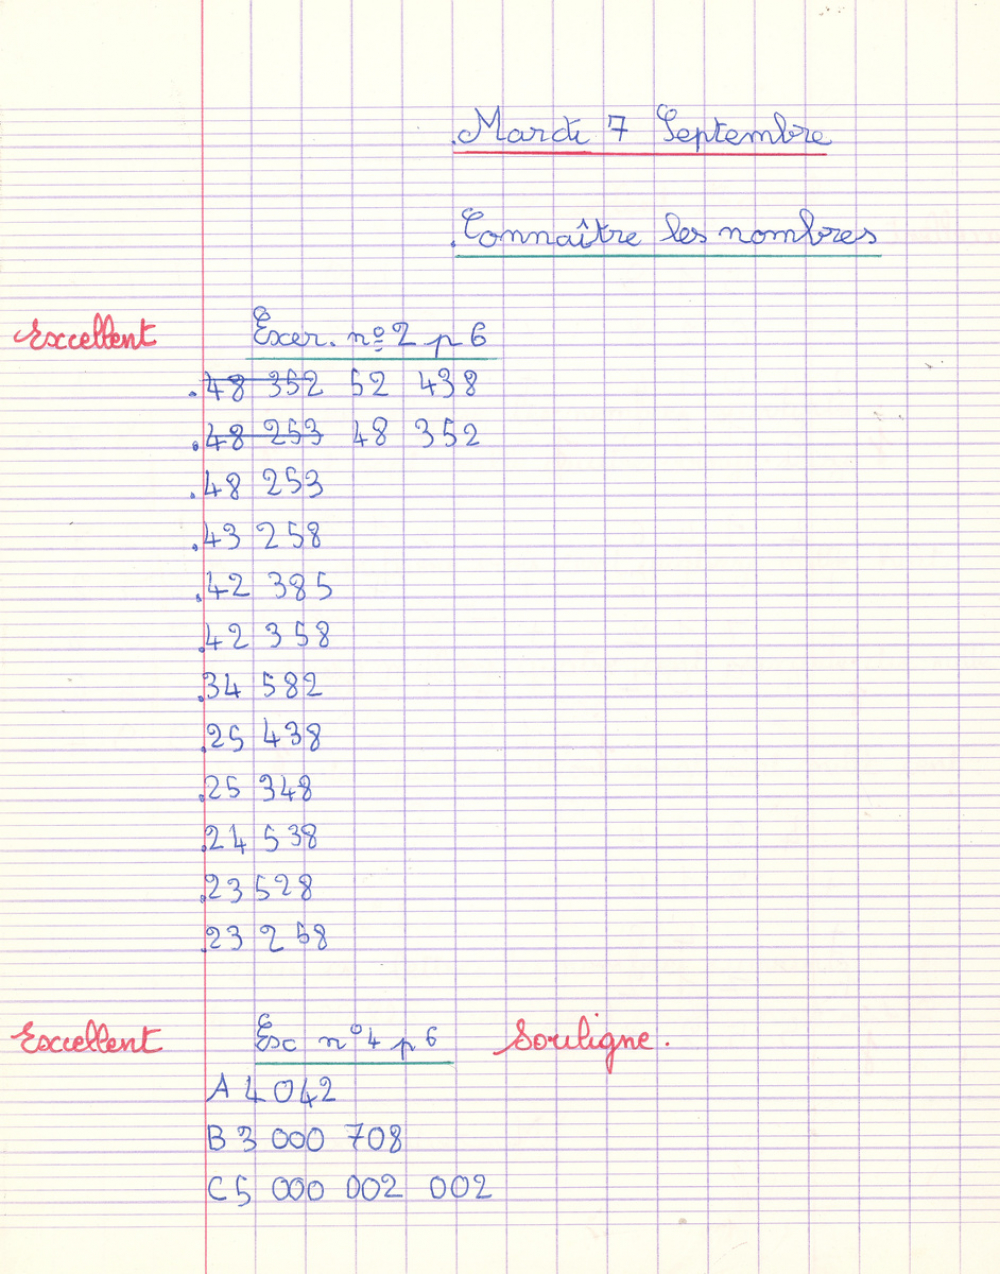 Mardi 7 Septembre
Connaître les nombres
Excellent Exer. n° 2 p 6
. 48 352 52 438
. 48 253 48 352
. 48 253
. 43 258
. 42 385
. 42 358
. 34 582
. 25 438
. 25 348
. 24 538
. 23 528
. 23 258
Excellent Ex n° 4 p 6 Souligne.
A 4 042
B 3 000 708
C 5 000 002 002